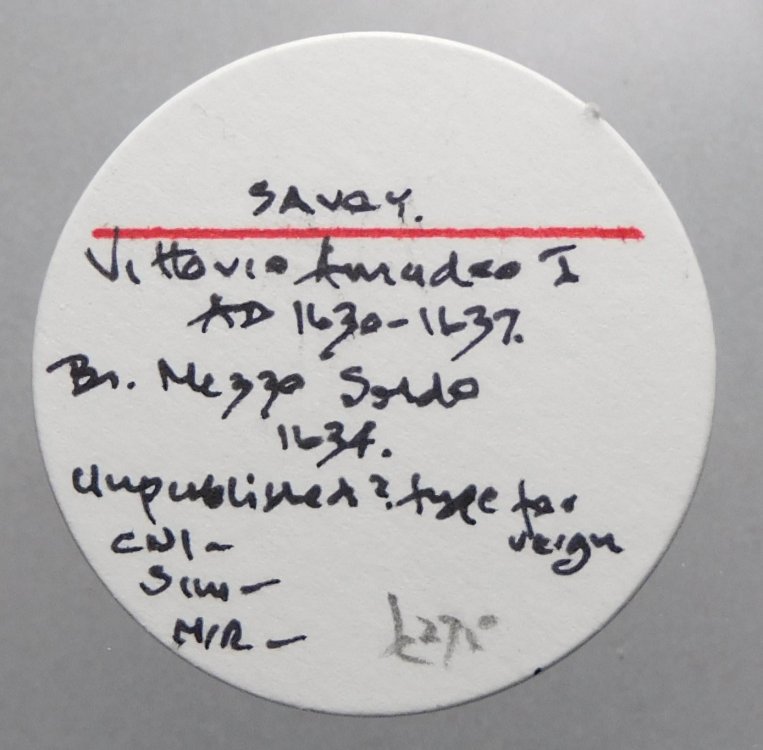 SAVOY.
Vittorio Amadeo I
AD 1630-1637.
Br. Mezzo Soldo
1634.
Unpublished? type for
reign
CNI -
Sim -
MIR -